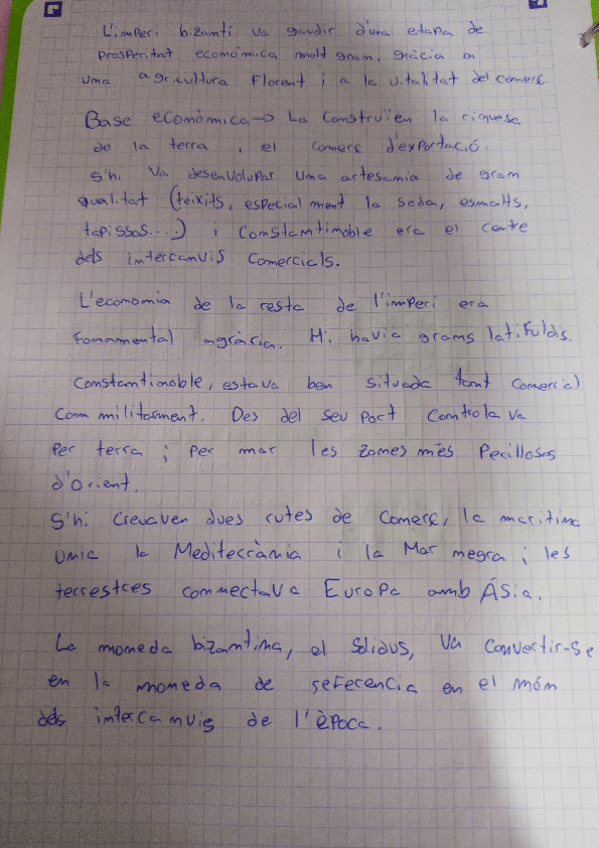 L'imperi bizantí va gaudir d'una etapa de
prosperitat econòmica molt gran, gràcia a
una agricultura florent i a la vitalitat del comerç
Base econòmica → La construïen la riquesa
de la terra i el comerç d'exportació.
S'hi va desenvolupar una artesania de gran
qualitat (teixits, especialment la seda, esmalts,
tapissos....) i Constantinoble era el centre
dels intercanvis comercials.
L'economia de la resta de l'imperi era
fonamental agrària. Hi havia grans latifuldis.
Constantinoble, estava ben situada tant comercial
com militarment. Des del seu port controlava
per terra i per mar les zones més perilloses
d'Orient.
S'hi creuaven dues rutes de comerç, la maritima
unia la Mediterrània i la Mar negra i les
terrestres connectava Europa amb Ásia.
La moneda bizantina, el Sòlidus, va convertir-se
en la moneda de referencia en el món
dels intercanvis de l'època.